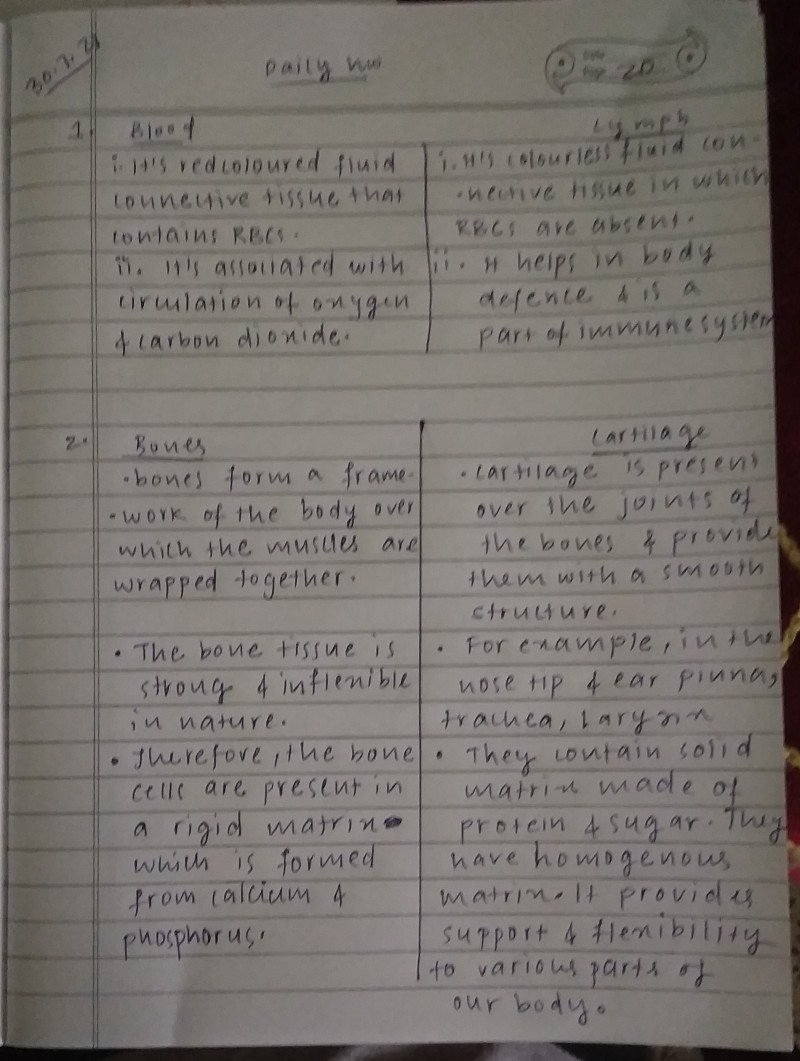 30.7.21
Daily hw
20
1. Blood
i. It's red coloured fluid
connective tissue that
contains RBCs.
ii. It's associated with
circulation of oxygen
& carbon dioxide.
Lymph
i. It's colourless fluid con-
-nective tissue in which
RBCs are absent.
ii. It helps in body
defence & is a
part of immune system
2. Bones
• bones form a frame-
• work of the body over
which the muscles are
wrapped together.
• The bone tissue is
strong & inflexible
in nature.
• Therefore, the bone
cells are present in
a rigid matrix
which is formed
from calcium &
phosphorus.
Cartilage
• cartilage is present
over the joints of
the bones & provide
them with a smooth
structure.
• For example, in the
nose tip & ear pinna,
trachea, larynx
• They contain solid
matrix made of
protein & sugar. They
have homogenous
matrix. It provides
support & flexibility
to various parts of
our body.